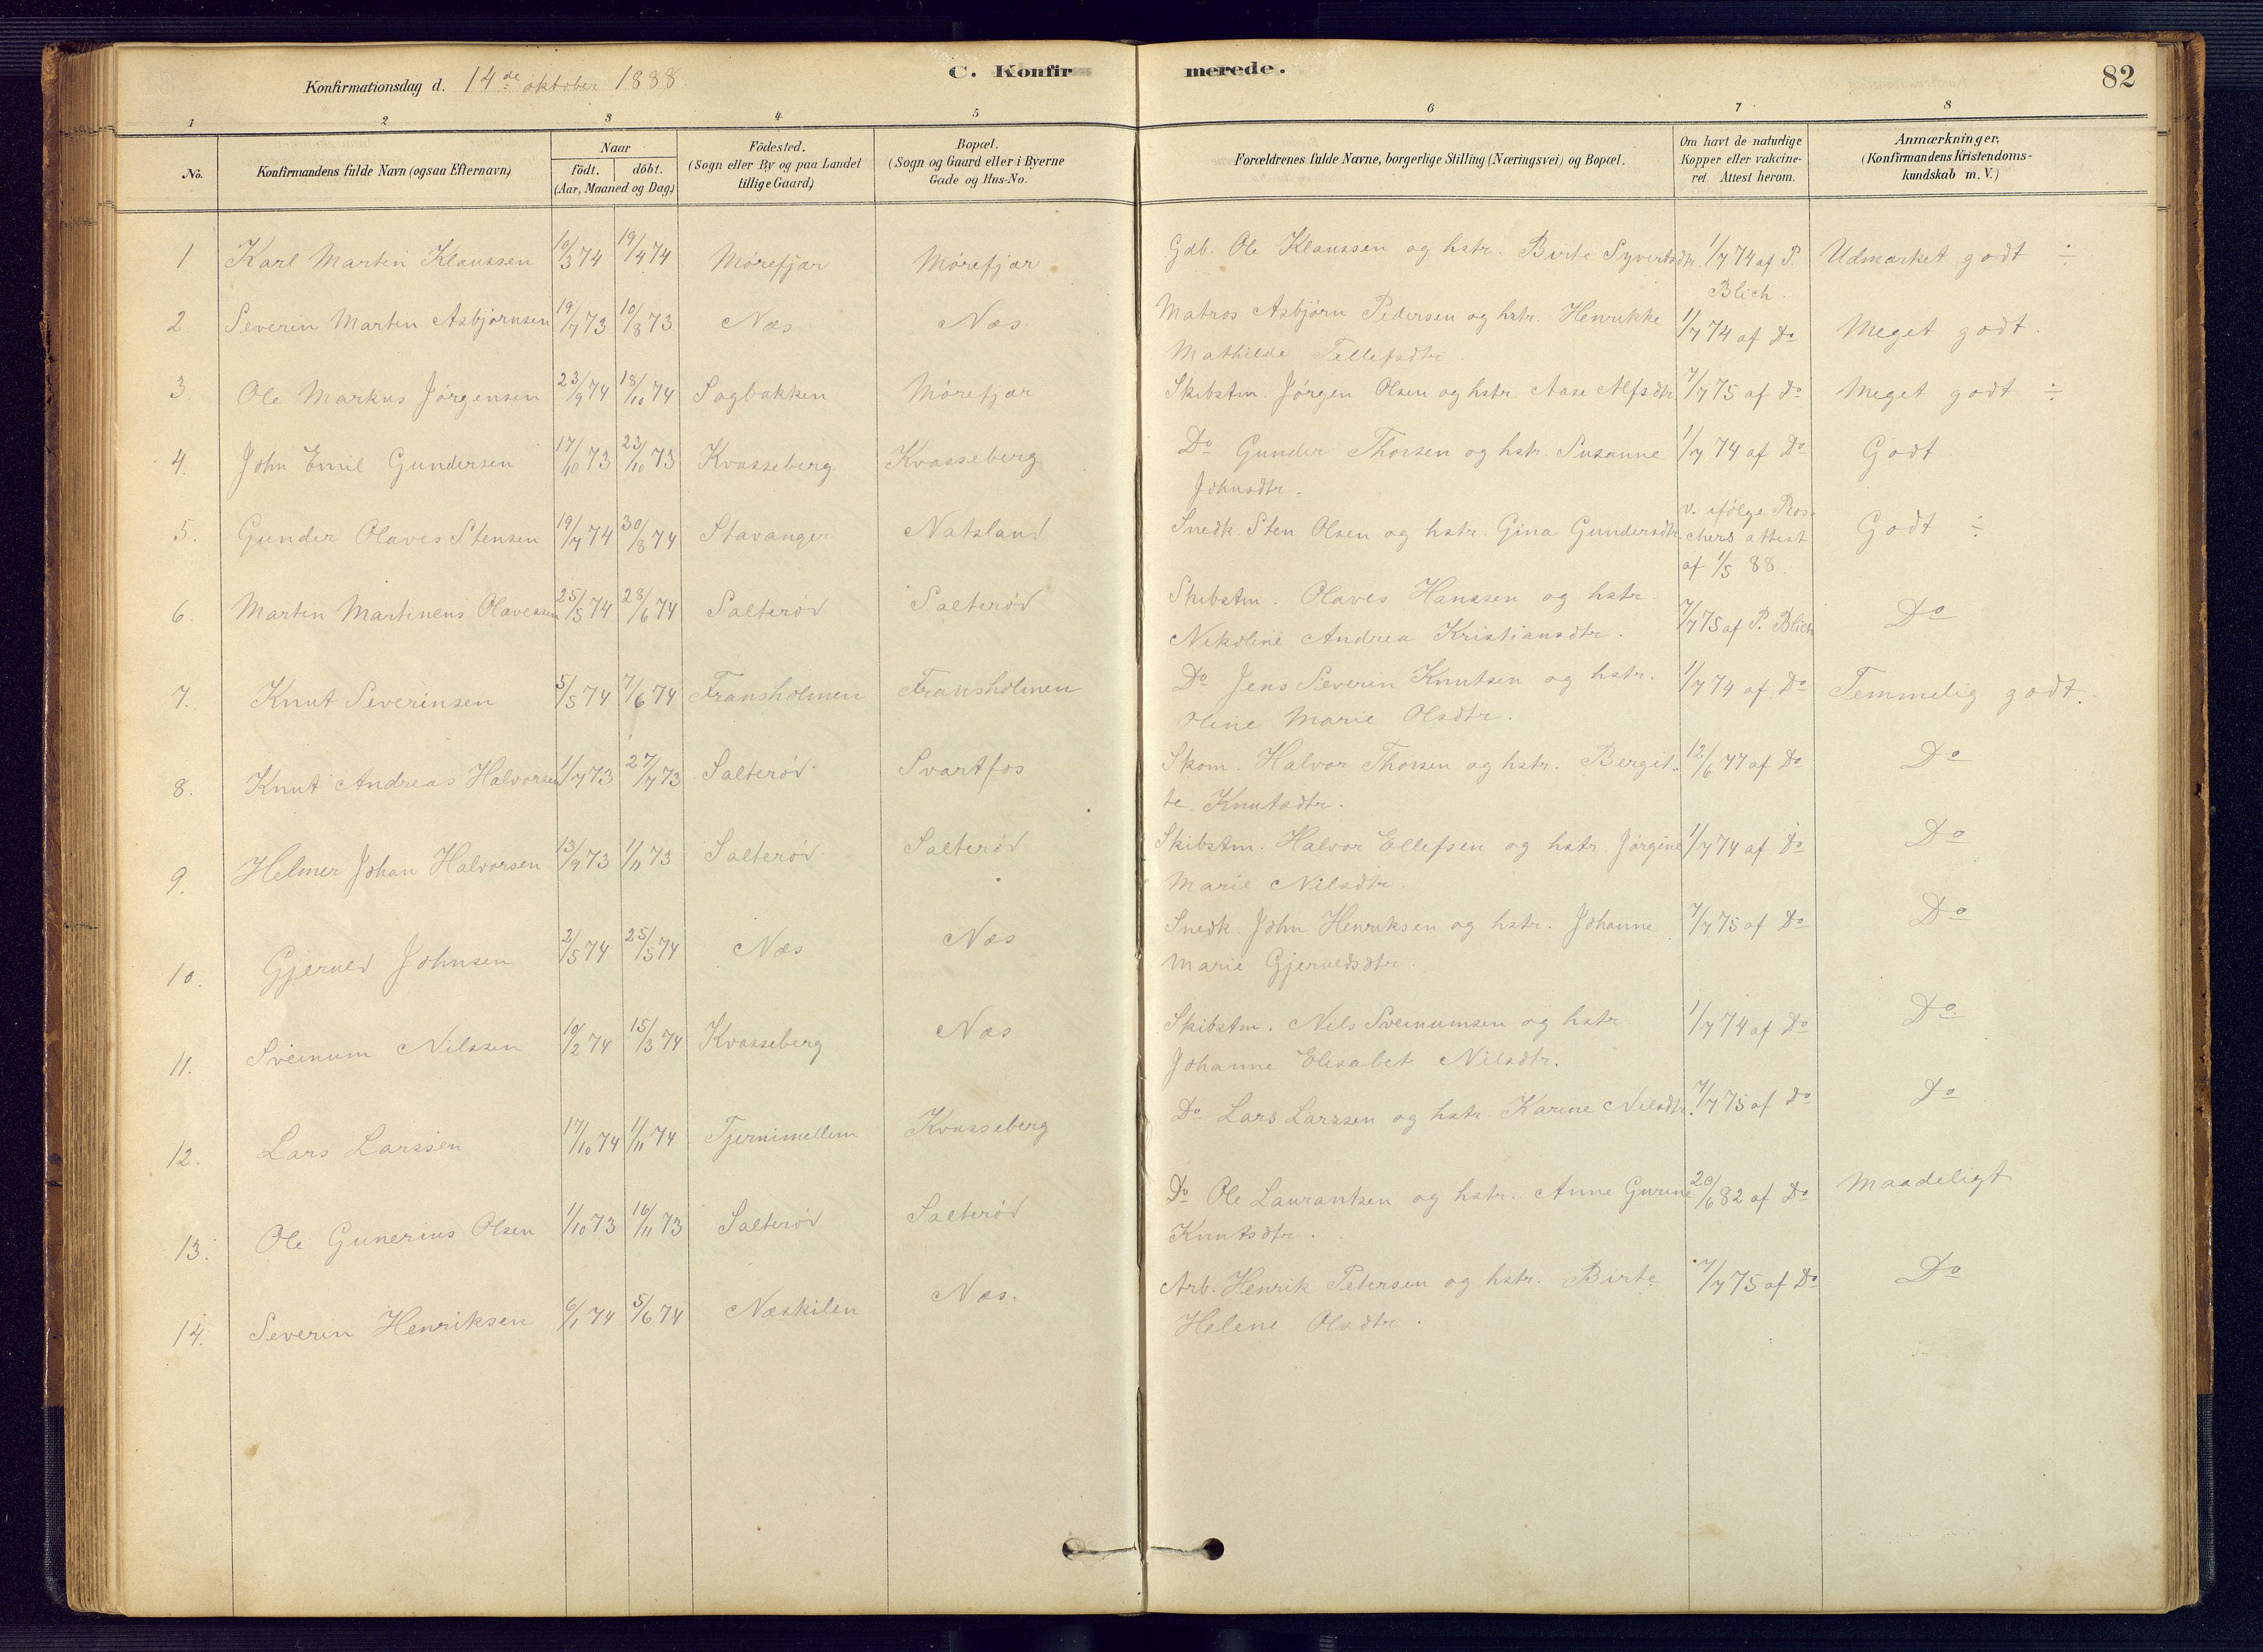 Konfirmationsdag d. 14de oktober 1888
C. Konfirmerede.
82
1 2 3 4 5 6 7 8
No.
Konfirmandens fulde Navn (ogsaa Efternavn)
Naar
födt. döbt.
(Aar, Maaned og Dag)
Födested.
(Sogn eller By og paa Landet
tillige Gaard)
Bopæl.
(Sogn og Gaard eller i Byerne
Gade og Hus-No.
Forældrenes fulde Navne, borgerlige Stilling (Næringsvei) og Bopæl.
Om havt de naturlige
Kopper eller vakcine-
ret. Attest herom.
Anmærkninger,
(Konfirmandens Kristendoms-
kundskab m. V.)
1 Karl Martin Klaussen 10/3 74 19/4 74 Mörefjær Mörefjær Gdb. Ole Klaussen og hstr. Birte Syvertsdtr. 1/7 74 af P. Udmærket godt ÷
Blich.
2. Severin Martin Asbjörnsen 19/7 73 10/8 73 Næs Næs Matros Asbjörn Pedersen og hstr. Henrikke 1/7 74 af Do Meget godt.
Mathilde Tellefsdtr.
3. Ole Markus Jörgensen 23/9 74 18/10 74 Sagbakken Mörefjær Skibstm. Jörgen Olsen og hstr. Aase Alfsdtr 7/7 75 af Do Meget godt ÷
4. John Emil Gundersen 17/10 73 23/10 73 Kvasseberg Kvasseberg Do Gunder Thorsen og hstr. Susanne 1/7 74 af Do Godt
Johnsdtr.
5. Gunder Olaves Stensen 19/7 74 30/8 74 Stavanger Natsland Snedk. Sten Olsen og hstr. Gina Gundersdtr. v. ifölge Ros- Godt ÷
chers attest
af 1/5 88.
6. Martin Martineus Olavessen 25/5 74 28/6 74 Salteröd Salteröd Skibstm. Olaves Hanssen og hstr.
Nikoline Andrea Kristiansdtr. 7/7 75 af P. Blich Do
7. Knut Severinsen 5/5 74 7/6 74 Fransholmen Fransholmen Do Jens Severin Knutsen og hstr. 1/7 74 af Do Temmelig godt.
Oline Marie Olsdtr.
8. Knut Andreas Halvorsen 1/7 73 27/7 73 Salteröd Svartfos Skom. Halvor Thorsen og hstr. Bergit- 12/6 77 af Do Do
te Knutsdtr.
9. Helmer Johan Halvorsen 13/9 73 1/11 73 Salteröd Salteröd Skibstm. Halvor Ellefsen og hstr. Jörgine 1/7 74 af Do Do
Marie Nilsdtr.
10. Gjerued Johnsen 2/5 74 25/5 74 Næs Næs Snedk. John Henriksen og hstr. Johanne 7/7 75 af Do Do
Marie Gjeruedsdtr.
11. Sveinum Nilssen 10/2 74 15/3 74 Kvasseberg Næs Skibstm. Nils Sveinumsen og hstr. 1/7 74 af Do Do
Johanne Elisabet Nilsdtr.
12. Lars Larssen 17/10 74 1/11 74 Tjernimellem Kvasseberg Do Lars Larssen og hstr. Karine Nilsdtr. 7/7 75 af Do Do
13. Ole Gunerius Olsen 1/10 73 16/11 73 Salteröd Salteröd Do Ole Laurantsen og hstr. Anne Gurine 20/6 82 af Do Maadeligt
Knutsdtr.
14. Severin Henriksen 6/1 74 5/6 74 Næskilen Næs. Arb. Henrik Petersen og hstr. Birte 7/7 75 af Do Do
Helene Olsdtr.